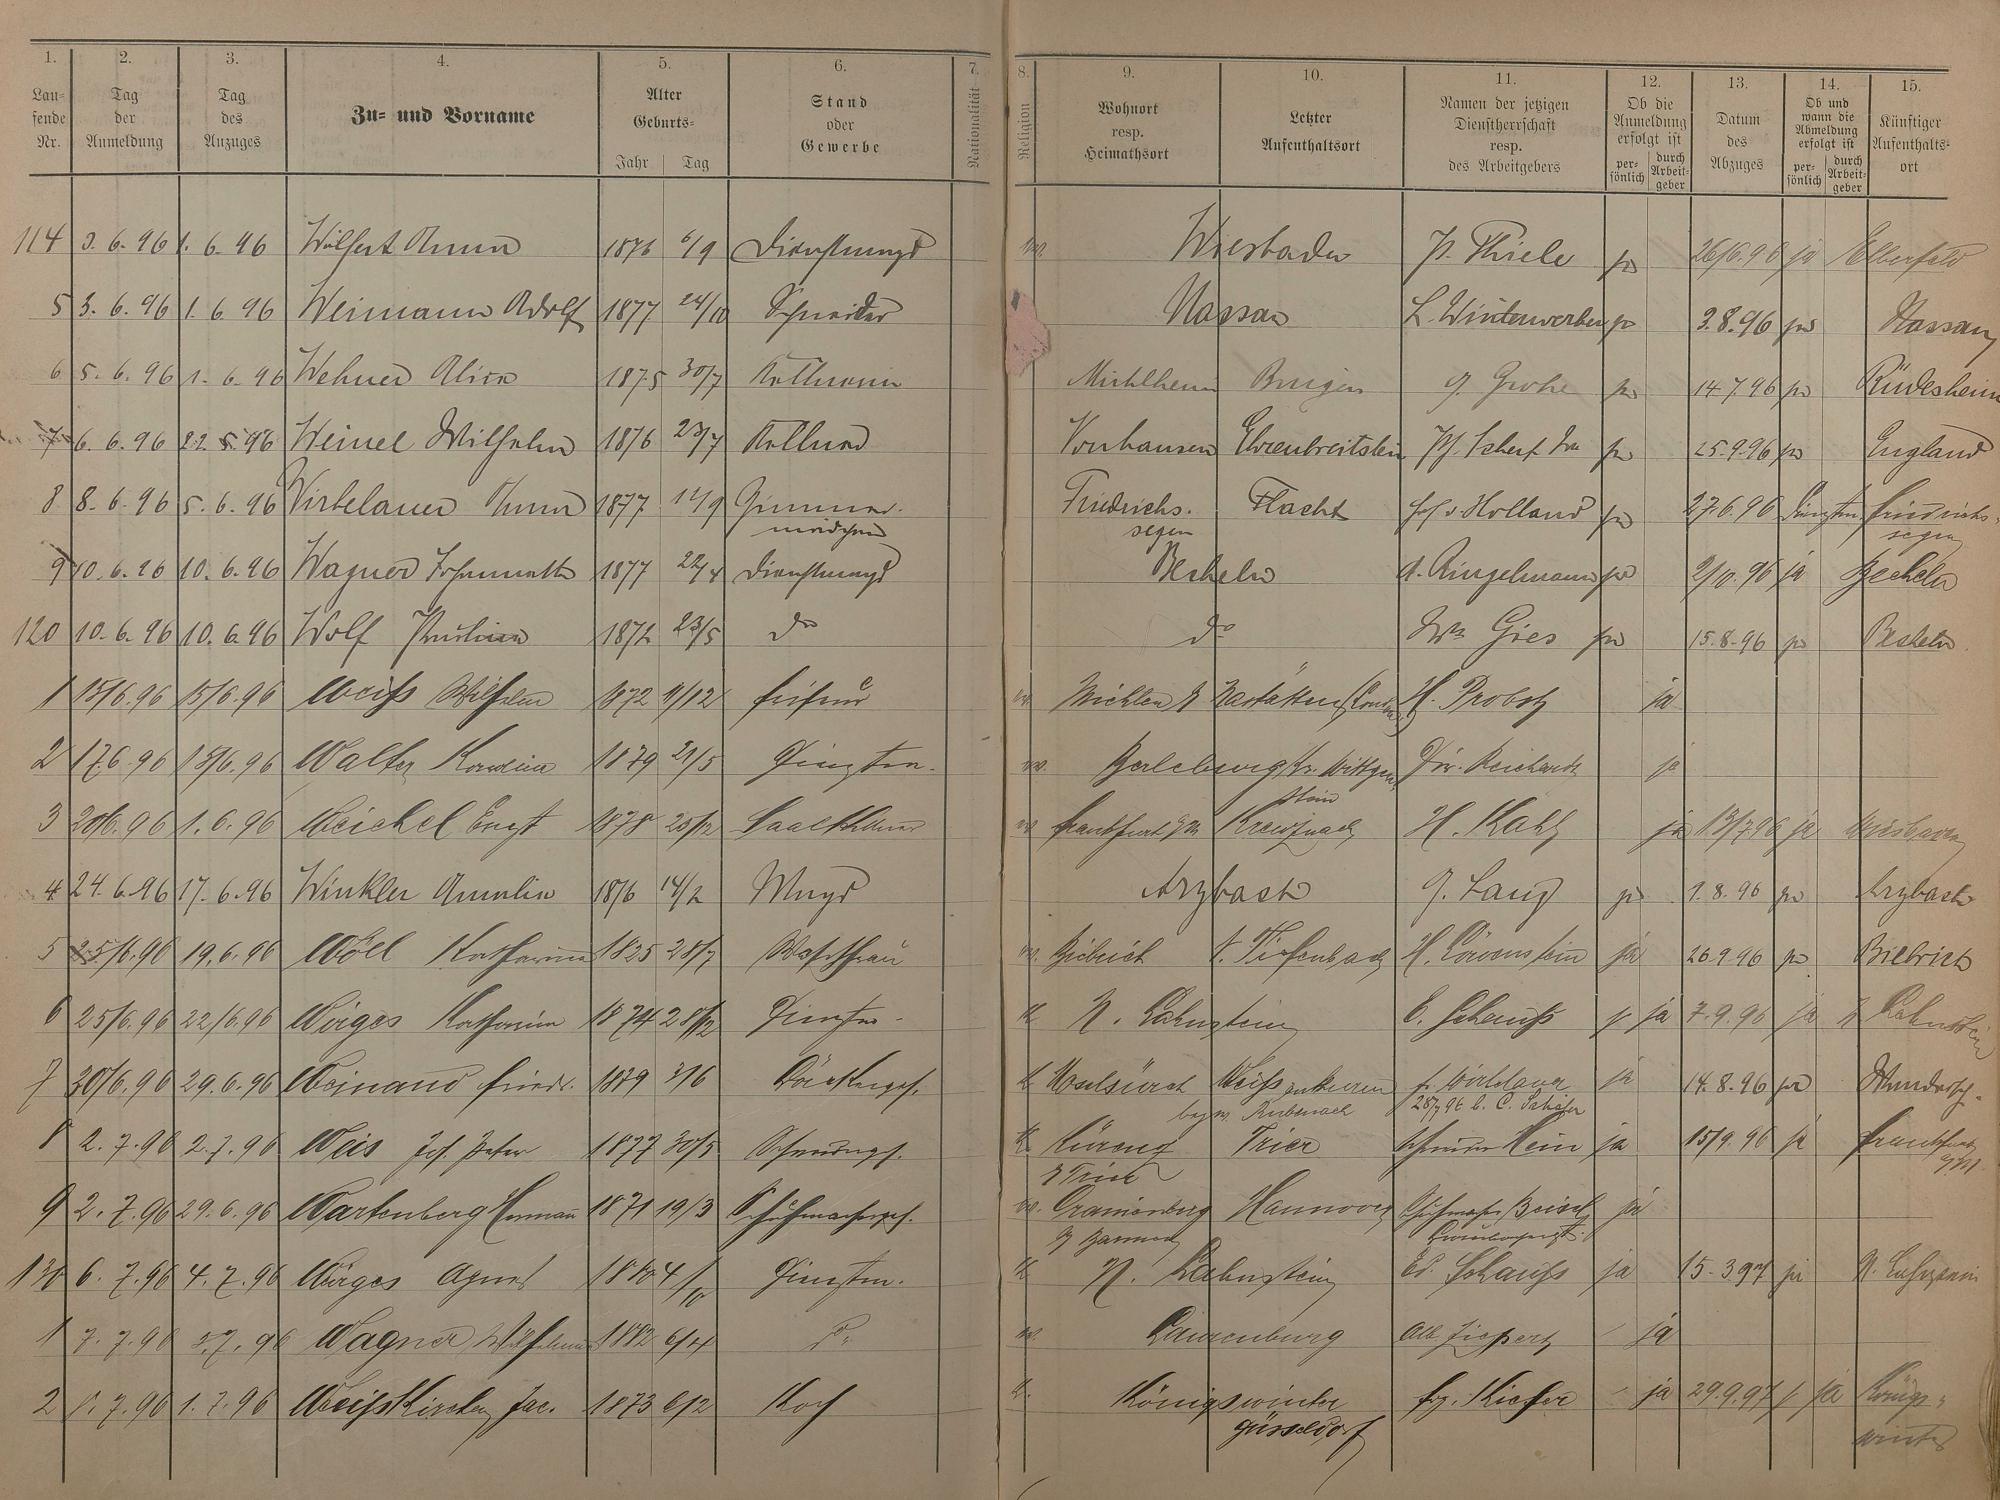 1. 2. 3. 4. 5. 6. 7. 8. 9. 10. 11. 12. 13. 14. 15.
Lau-fende Nr. Tag der Anmeldung Tag des Anzuges Zu- und Vorname Alter Geburts- Jahr Tag Stand oder Gewerbe Nationalität Religion Wohnort resp. Heimathsort Letzter Aufenthaltsort Namen der jetzigen Dienstherrschaft resp. des Arbeitgebers Ob die Anmeldung erfolgt ist per-sönlich durch Arbeit-geber Datum des Abzuges Ob und wann die Abmeldung erfolgt ist per-sönlich durch Arbeit-geber Künftiger Aufenthalts-ort
114 3. 6. 96 1. 6. 96 Wölfert Anna 1876 6/9 Dienstmagd Wiesbaden P. Thiele 26/6.96 ja Elberfeld
5 3. 6. 96 1. 6. 96 Weimann Adolf 1877 24/10 Schneider Nassau L. Winterwerber 3.8.96 Nassau
6 5. 6. 96 1. 6. 96 Wehner Alice 1875 30/7 Kellnerin Bingen G. Grohe 14.7.96 Rüdesheim
7 6. 6. 96 22. 5. 96 Weinel Wilhelm 1876 23/7 Kellner Ehrenbreitstein 25.9.96 England
8 8. 6. 96 5. 6. 96 Wirbelauer Anna 1877 14/9 Zimmer-
mädchen Friedrichs-
segen Flacht Hof v. Holland 27.6.96 Friedrichs-
segen
9 10. 6. 96 10. 6. 96 Wagner Johannette 1877 22/4 Dienstmagd Becheln A. Ringelmann 2/10.96 ja Becheln
120 10. 6. 96 10. 6. 96 Wolf Pauline 1872 23/5 do do Wwe Gies 15.8.96 Becheln
1 15/6.96 15/6.96 Weiß Wilhelm 1872 11/12 Friseur Miehlen Nastätten H. Probst ja
2 17.6.96 15/6.96 Walter 1879 21/5 Dienstm. Berleburg Kr. Wittgen-
stein Reichardt ja
3 20/6.96 1. 6. 96 Weichel Ernst 1878 25/12 Saalkellner Frankfurt a/M Kreuznach H. Kahl ja 13/7.96 ja Wiesbaden
4 24. 6. 96 17. 6. 96 Winkler Amalie 1876 14/2 Magd Arzbach J. Lang 1.8.96 Arzbach
5 25/6.96 19.6.96 Wöll Katharina 1825 28/7 Waschfrau Biebrich Tiefenbach H. Löwenstein ja 26.9.96 Biebrich
6 25/6.96 22/6.96 Wirges Katharina 1874 28/12 Dienstm. N. Lahnstein E. Schauß ja 7.9.96 ja N Lahnstein
7 30/6.96 29.6.96 Weinand Friedr. 1879 3/6 Bäckerges. Weißenthurm ja 14.8.96
28/7 96 b. C. Schäfer
8 2. 7. 96 2. 7. 96 Weis Joh. Peter 1877 30/5 Schneiderges. Kürenz
b Trier Trier Schneider Hein ja 15/9.96 ja Frankfurt
a/M
9 2. 7. 96 29. 6. 96 Wartenberg Herman 1871 19/3 Schuhmacherges. Hannover Schuhmacher Beisel ja
130 6. 7. 96 4. 7. 96 Wirges Agnes 1880 4/10 Dienstm. N. Lahnstein Ed. Schauß ja 15.3 97 N. Lahnstein
1 7. 7. 96 7. 96 Wagner Wilhelmine 1882 6/4 do Laurenburg ja
2 7. 96 1. 7. 96 Weißkirchen Jac. 1873 6/2 Koch Königswinter
Düsseldorf Frz. Kiefer ja 29.9.97 ja Königs-
winter